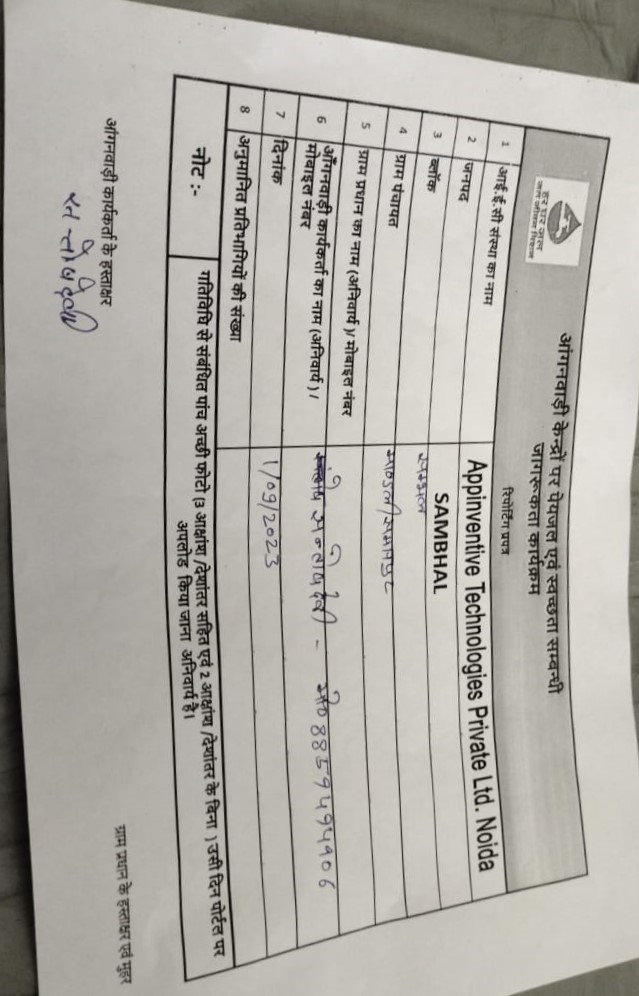 हर घर जल
जल जीवन मिशन
आंगनवाड़ी केन्द्रों पर पेयजल एवं स्वच्छता सम्बन्धी
जागरूकता कार्यक्रम
रिपोर्टिंग प्रपत्र
1 आई.ई.सी संस्था का नाम Appinventive Technologies Private Ltd. Noida
2 जनपद SAMBHAL
3 ब्लॉक सम्भल
4 ग्राम पंचायत
5 ग्राम प्रधान का नाम (अनिवार्य )/ मोबाइल नंबर
6 आँगनवाड़ी कार्यकर्ता का नाम (अनिवार्य ) /
मोबाइल नंबर
सन्तोष देवी - मो० 8859494906
7 दिनांक 1/09/2023
8 अनुमानित प्रतिभागियों की संख्या
नोट :- गतिविधि से संबंधित पांच अच्छी फोटो (3 आक्षांश /देशांतर सहित एवं 2 आक्षांश /देशांतर के बिना ) उसी दिन पोर्टल पर
अपलोड किया जाना अनिवार्य है।
आंगनवाड़ी कार्यकर्ता के हस्ताक्षर
ग्राम प्रधान के हस्ताक्षर एवं मुहर